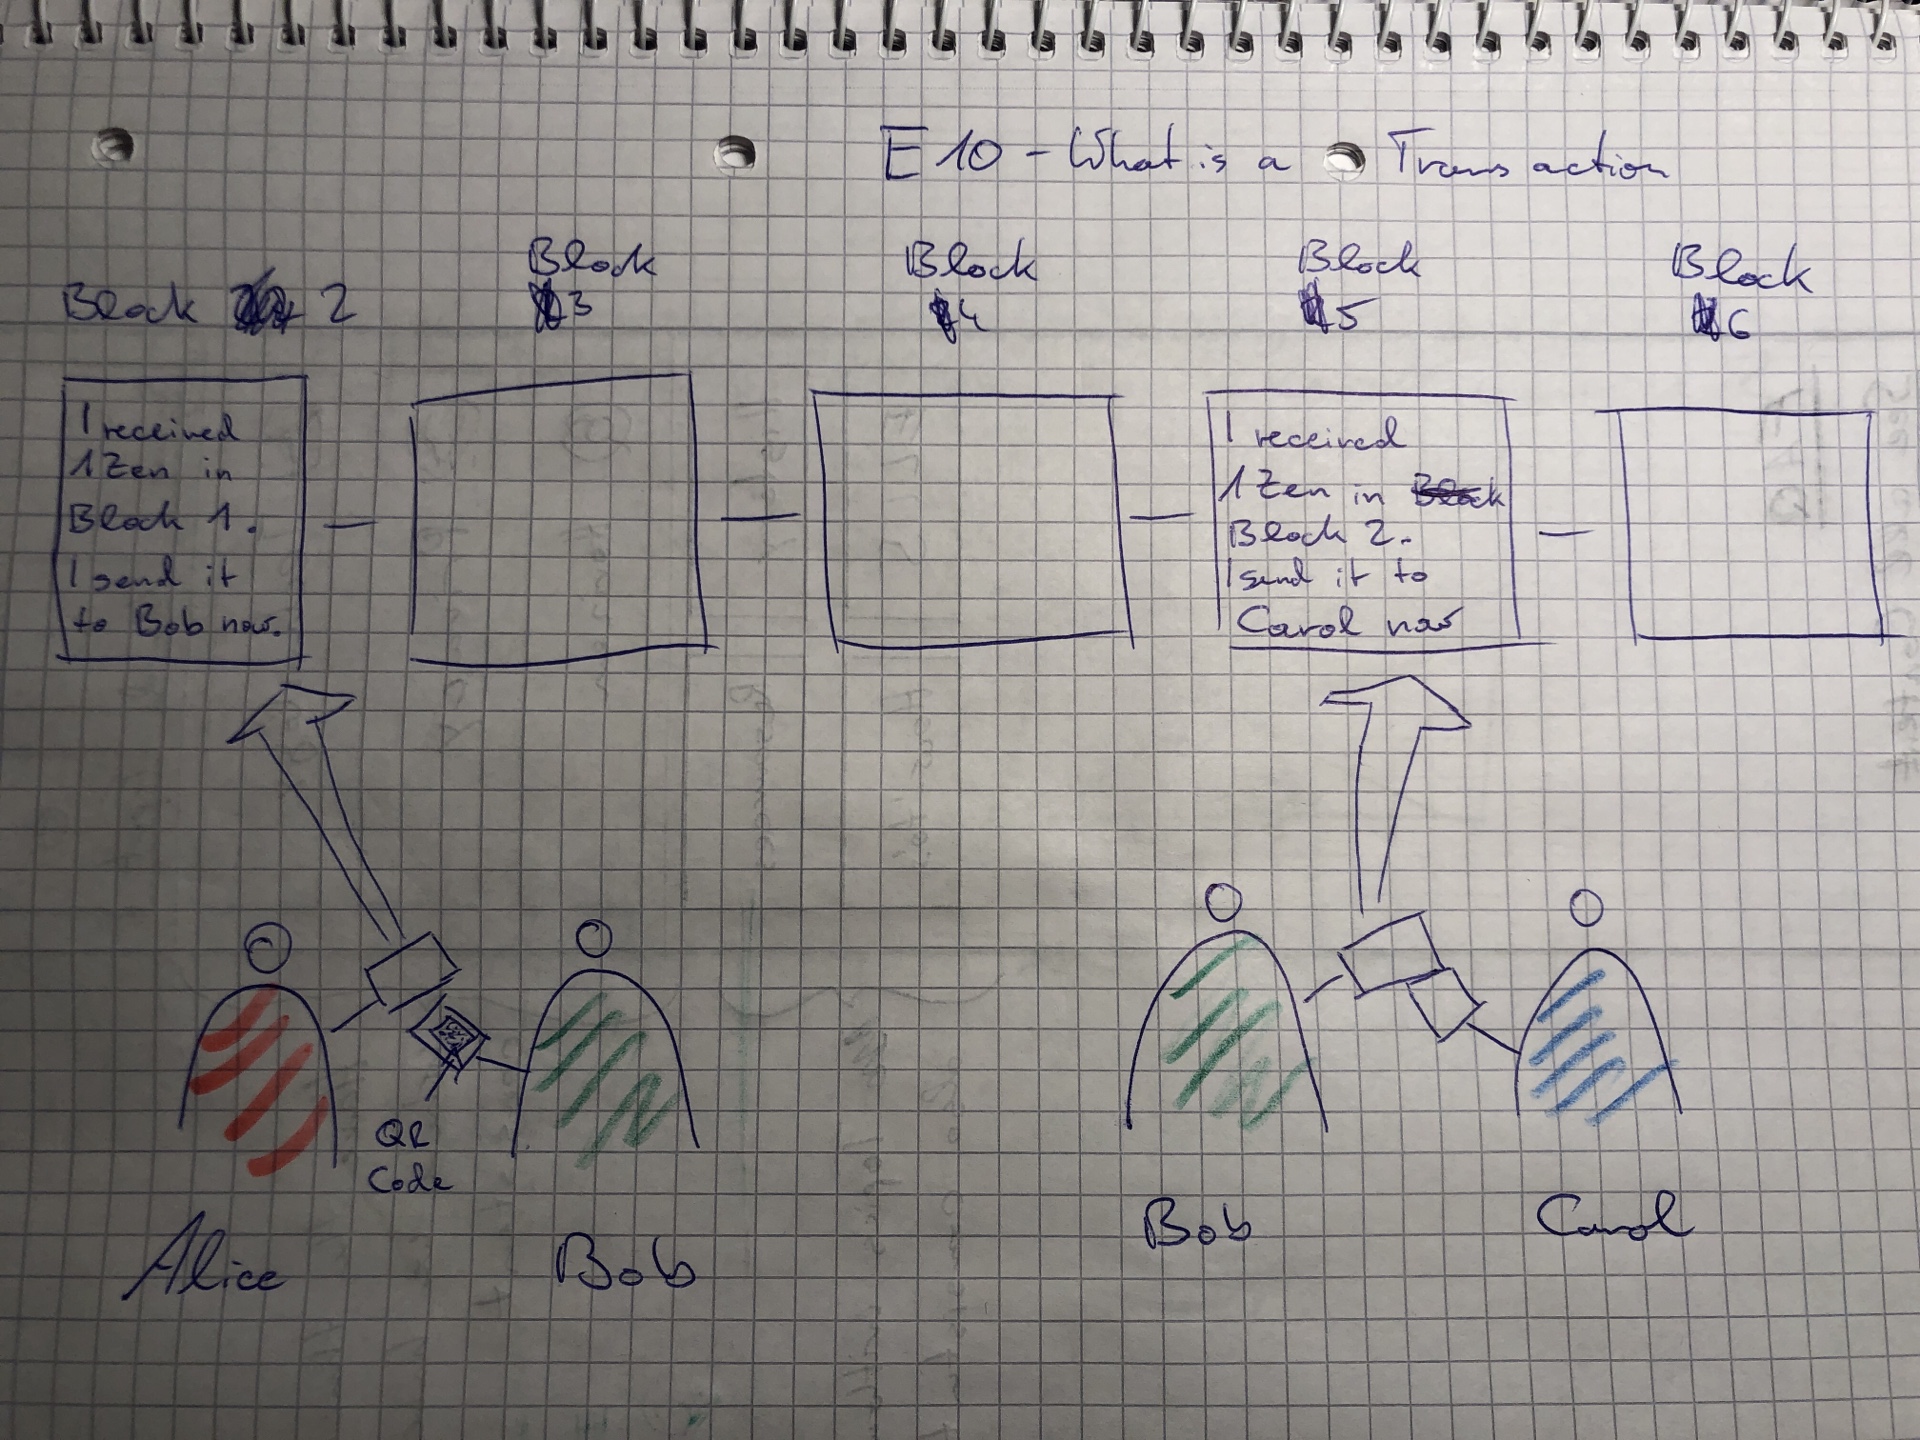 E10 - What is a Transaction
Block 2
Block
3
Block
4
Block
5
Block
6
I received
1 Zen in
Block 1.
I send it
to Bob now.
I received
1 Zen in Block
Block 2.
I send it to
Carol now
QR
Code
Alice
Bob
Bob
Carol